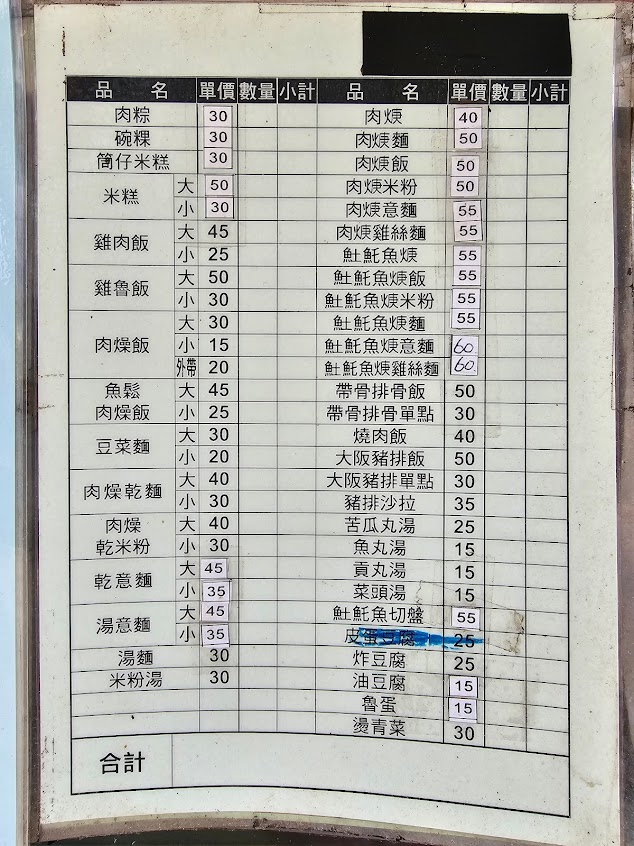 品 名 單價 數量 小計 品 名 單價 數量 小計
肉粽 30 肉焿 40
碗粿 30 肉焿麵 50
筒仔米糕 30 肉焿飯 50
米糕 大 50 肉焿米粉 50
小 30 肉焿意麵 55
雞肉飯 大 45 肉焿雞絲麵 55
小 25 𩵚魠魚焿 55
雞魯飯 大 50 𩵚魠魚焿飯 55
小 30 𩵚魠魚焿米粉 55
肉燥飯 大 30 𩵚魠魚焿麵 55
小 15 𩵚魠魚焿意麵 60
外帶 20 𩵚魠魚焿雞絲麵 60
魚鬆 大 45 帶骨排骨飯 50
肉燥飯 小 25 帶骨排骨單點 30
豆菜麵 大 30 燒肉飯 40
小 20 大阪豬排飯 50
肉燥乾麵 大 40 大阪豬排單點 30
小 30 豬排沙拉 35
肉燥 大 40 苦瓜丸湯 25
乾米粉 小 30 魚丸湯 15
乾意麵 大 45 貢丸湯 15
小 35 菜頭湯 15
湯意麵 大 45 𩵚魠魚切盤 55
小 35 皮蛋豆腐 25
湯麵 30 炸豆腐 25
米粉湯 30 油豆腐 15
魯蛋 15
燙青菜 30
合計